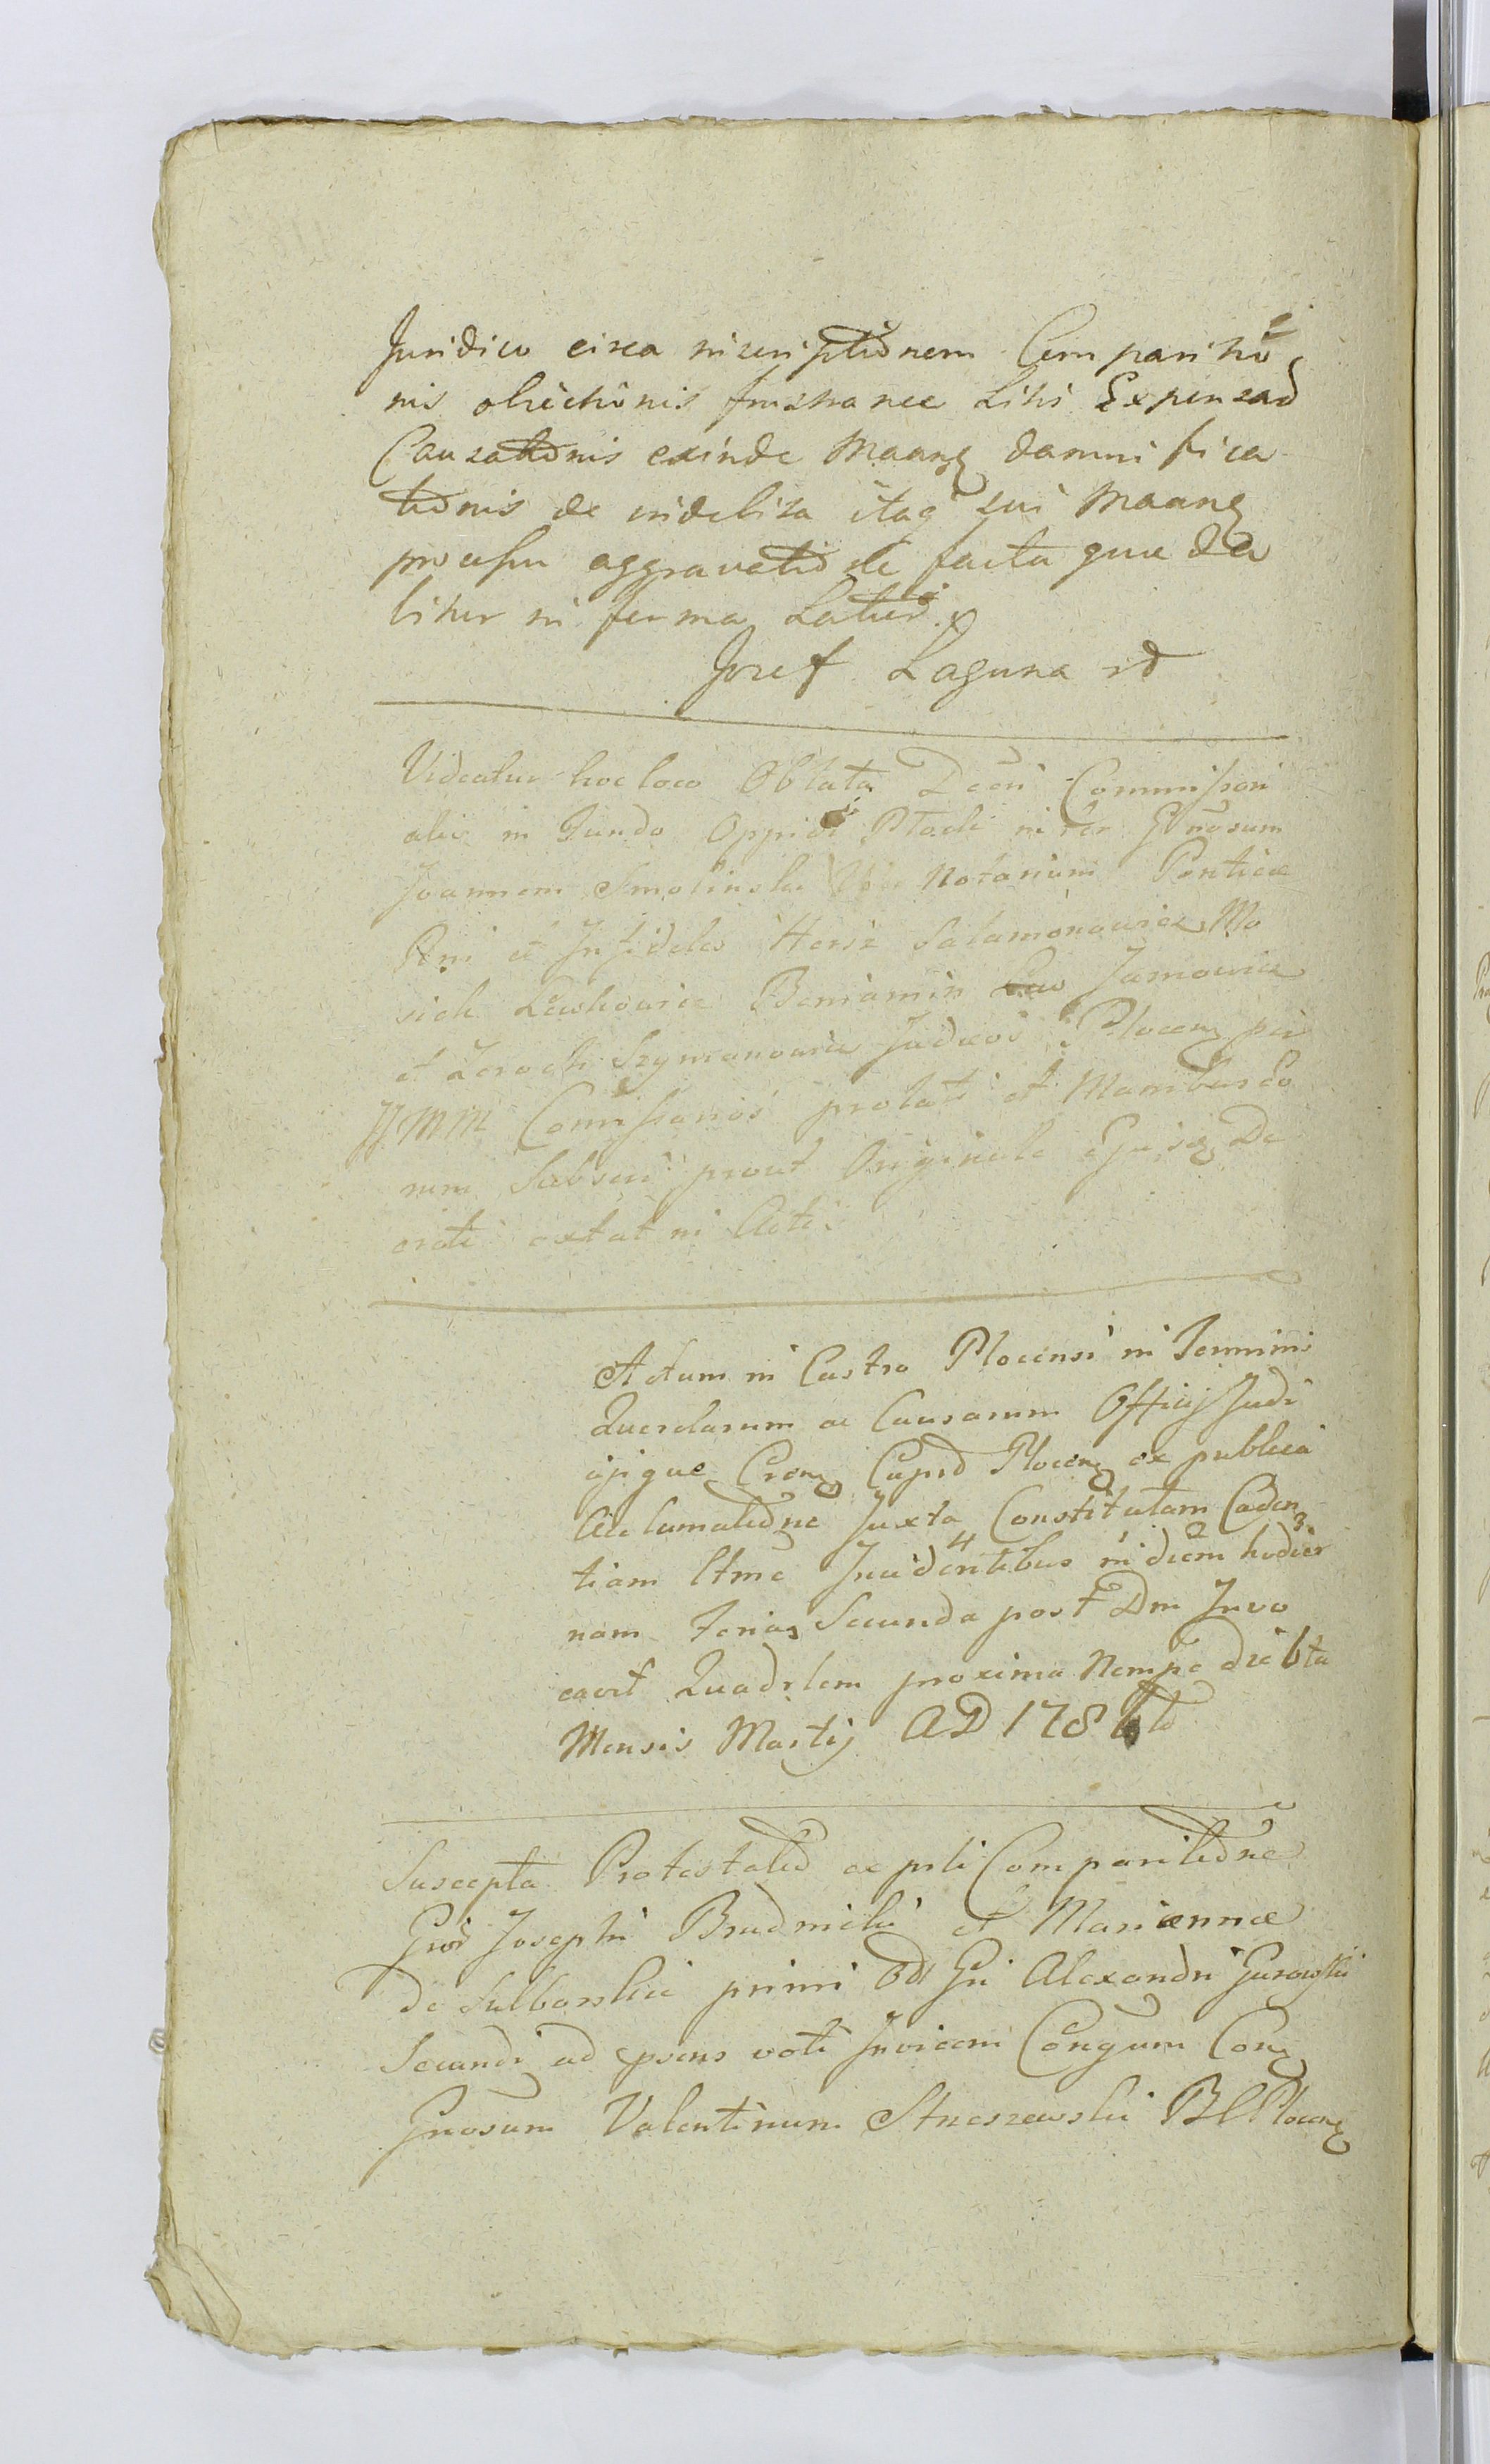 Juridico circa inscriptionem Comparitio
nis obiectionis frustranee Litis Expensar
Causationis exinde Maang damnifica
tionis de indebita itaq sui Maang
processu aggravatio de facta quae da
bitur in forma Latiori
Jozef Laguna
Videatur hoc loco Oblata Decri Commissori
alis in Fundo Oppidi inter Gnosum
Joannem Smolinski Vice Notarium
Rni et Infideles Hersz Salamonowicz Mo
siek Lewkowicz Beniamin Jamowicz
et Zeroch Szymanowicz Judaeos Plocen per
JJ MM Comissarios prolati et Manibus Eo
rum Subscri prout Originale Ejusq De
creti extat in Actis
Actum in Castro Plocensi in Terminis
Querelarum ac Causarum Officij Judi
cijque Cren Capnd Plocen ex publica
Acclamatione Juxta Constitutam Caden
tiam ltme Incidentibus in diem hodier
nam Feria Secunda post Dm Invo
cavit Quadrlem proxima Nempe die 6ta
Mensis Martij AD 1786to
Suscepta Protestatio ac prli Comparitione
Gnor Josephi Brudnicki et Mariannae
de Sulborskie primi Gni Alexandri Gurowski
Secundi ad psens voti Invicem Congum Con
Gnosum Valentinum Strzeszewski B C Plocen